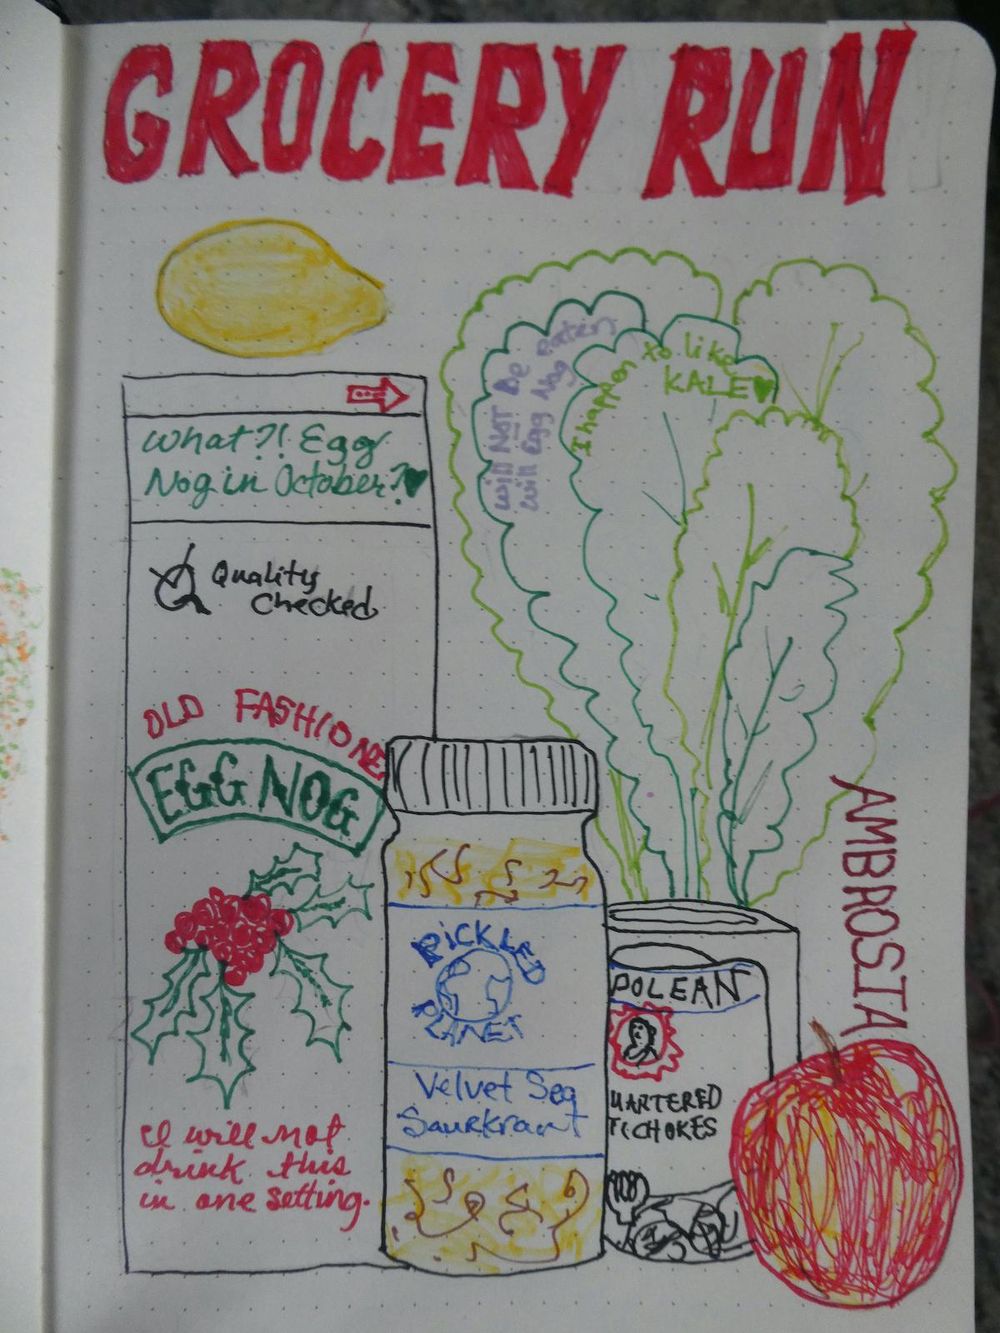 GROCERY RUN
What?! Egg
Nog in October?
Quality
Checked
OLD FASHIONE
EGG NOG
I will not
drink this
in one setting.
Will NOT Be eaten
with Egg Nog
I happen to like
KALE
PICKLED
PLANET
Velvet Sea
Saurkraut
POLEAN
UARTERED
TICHOKES
AMBROSIA